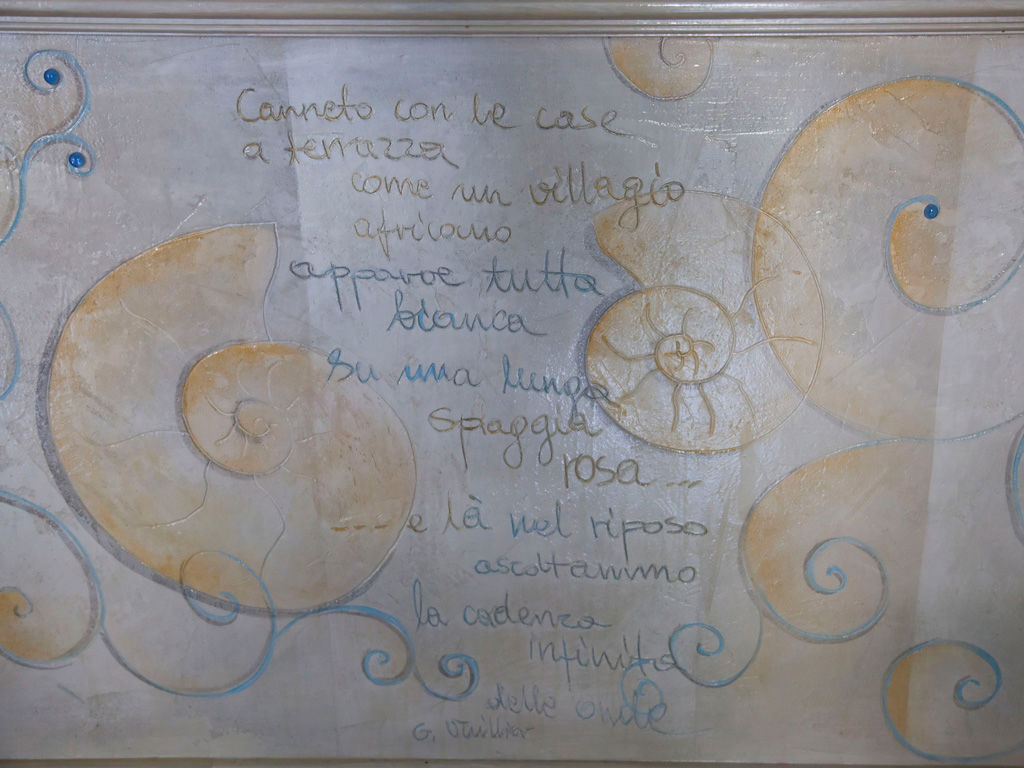 Canneto con le case
a terrazza
come un villagio
africano
apparve tutta
bianca
su una lunga
spiaggia
rosa ...
---- e là nel riposo
ascoltammo
la cadenza
infinita
delle onde
G. Vuillier